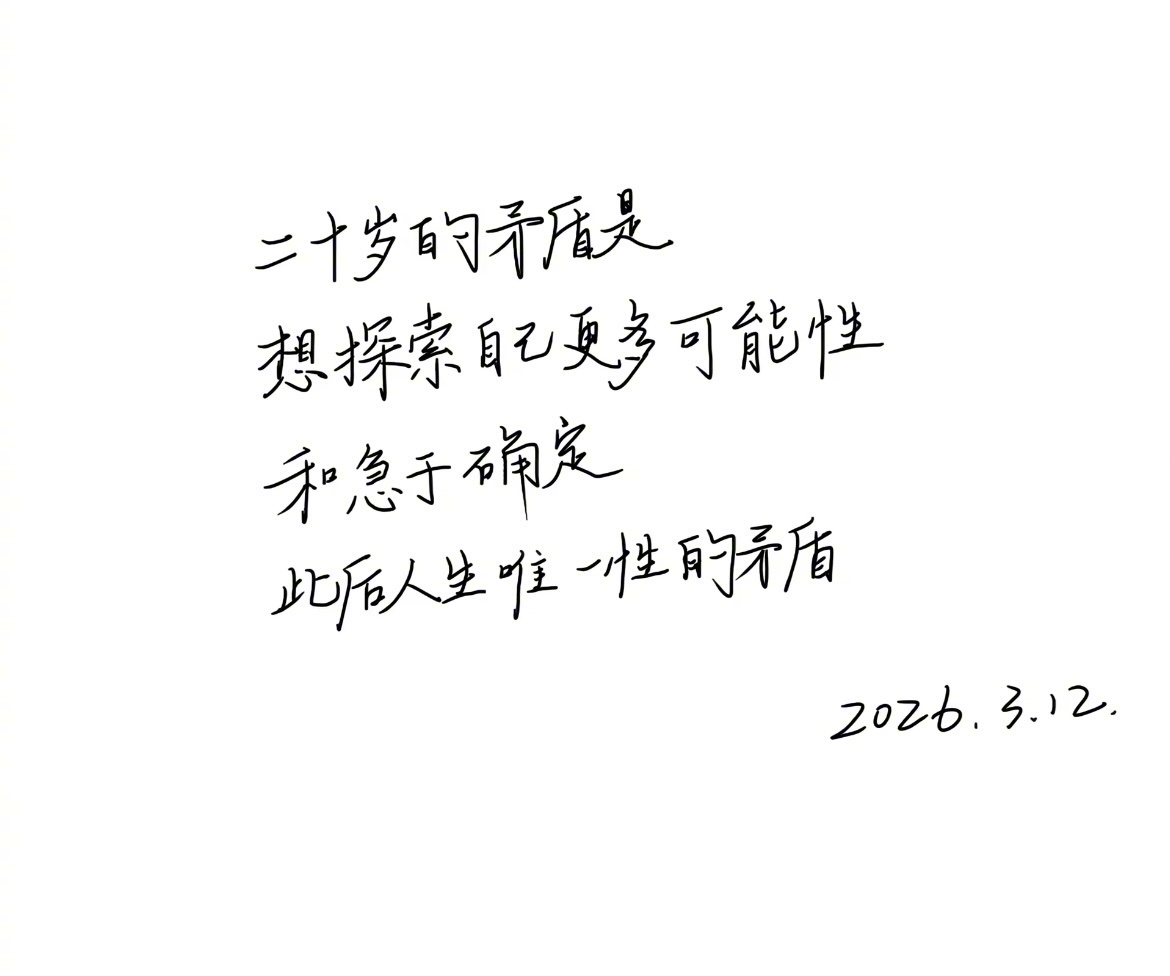 二十岁的矛盾是
想探索自己更多可能性
和急于确定
此后人生唯一性的矛盾
2026.3.12.